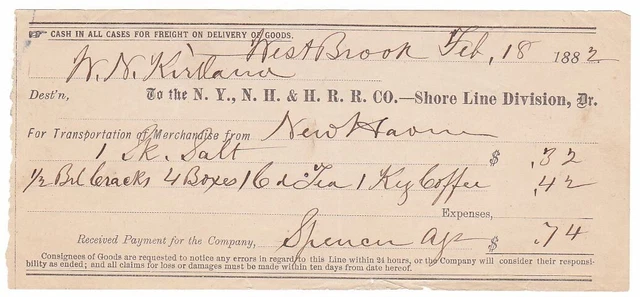 CASH IN ALL CASES FOR FREIGHT ON DELIVERY OF GOODS.
West Brook Feb, 18 1882
W. N. Kirtland
Dest'n, To the N. Y., N. H. & H. R. R. CO.—Shore Line Division, Dr.
For Transportation of Merchandise from New Haven
1 Sk. Salt $ .32
1/2 Brl Cracks 4 Boxes 1 C d Tea 1 Keg Coffee .42
Expenses,
Received Payment for the Company, Spencer Agt $ .74
Consignees of Goods are requested to notice any errors in regard to this Line within 24 hours, or the Company will consider their responsi-
bility as ended; and all claims for loss or damages must be made within ten days from date hereof.